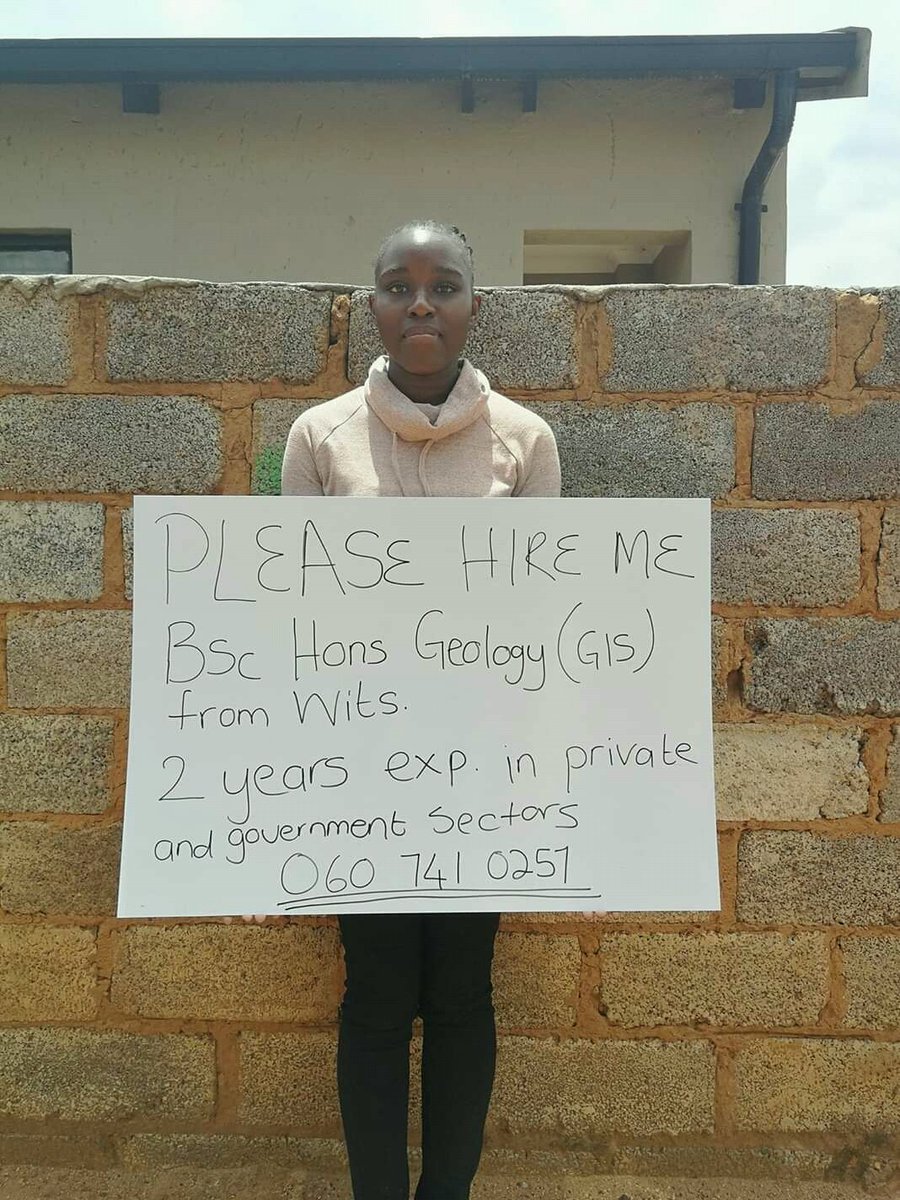 PLEASE HIRE ME
Bsc Hons Geology (GIS)
from Wits.
2 years exp. in private
and government sectors
060 741 0257